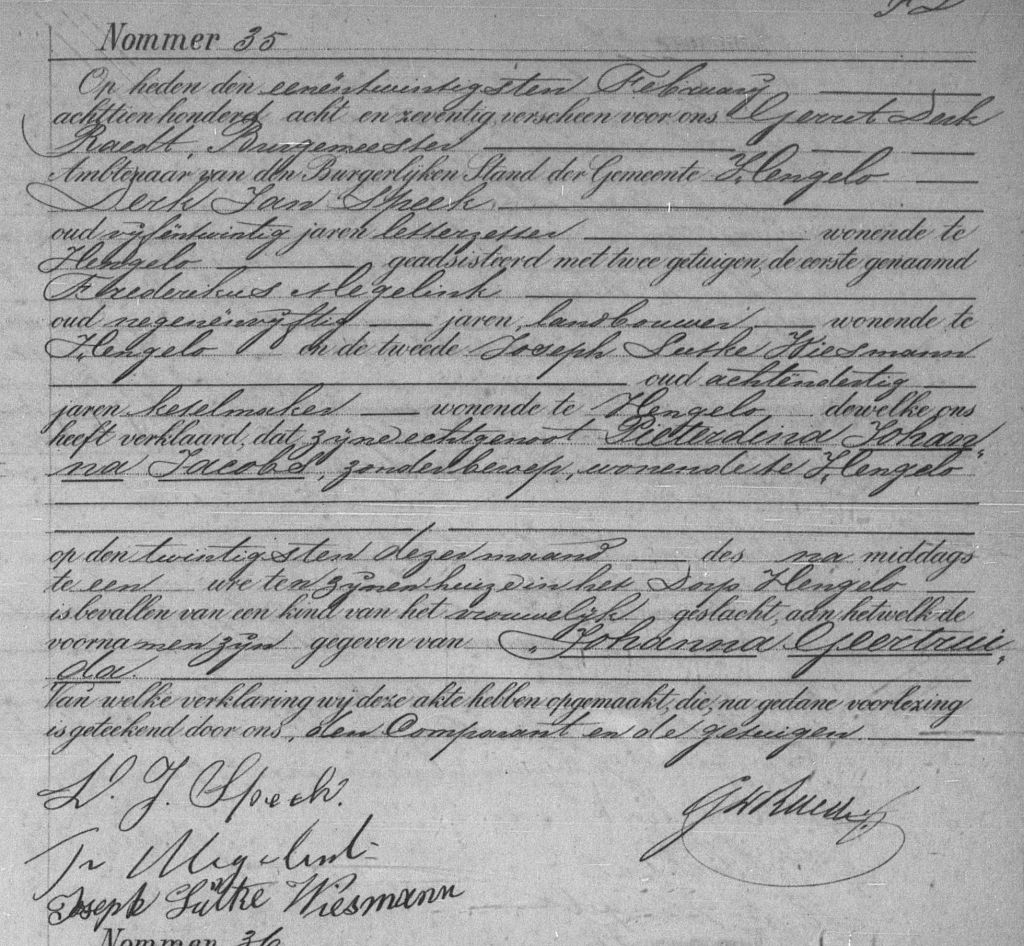 Nommer 35
Op heden den eenëntwintigsten February
achttienhonderd acht en zeventig, verscheen voor ons Gerrit Derk
Raedt, Burgemeester
Ambtenaar van den Burgerlijken Stand der Gemeente Hengelo
Derk Jan Speek
oud vyfëntwintig jaren letterzetter wonende te
Hengelo geadsisteerd met twee getuigen, de eerste genaamd
Frederikus Megelink
oud negenënvyftig jaren, landbouwer wonende te
Hengelo en de tweede Joseph Lutke Wiesmann
oud achtëndertig
jaren ketelmaker wonende te Hengelo dewelke ons
heeft verklaard, dat zyne echtgenoot Pietterdina Johan„
na Jacobs, zonder beroep, wonende te Hengelo
op den twintigsten dezer maand des na middags
te een ure ten zynen huize in het Dorp Hengelo
is bevallen van een kind van het vrouwelyk geslacht, aan hetwelk de
voornamen zyn gegeven van „Johanna Geertrui„
da.
Van welke verklaring wij deze akte hebben opgemaakt, die, na gedane voorlezing
is geteekend door ons, den Comparant en de getuigen.
D. J. Speek.
Fr Megelink
Joseph Lütke Wiesmann
Nommer 36